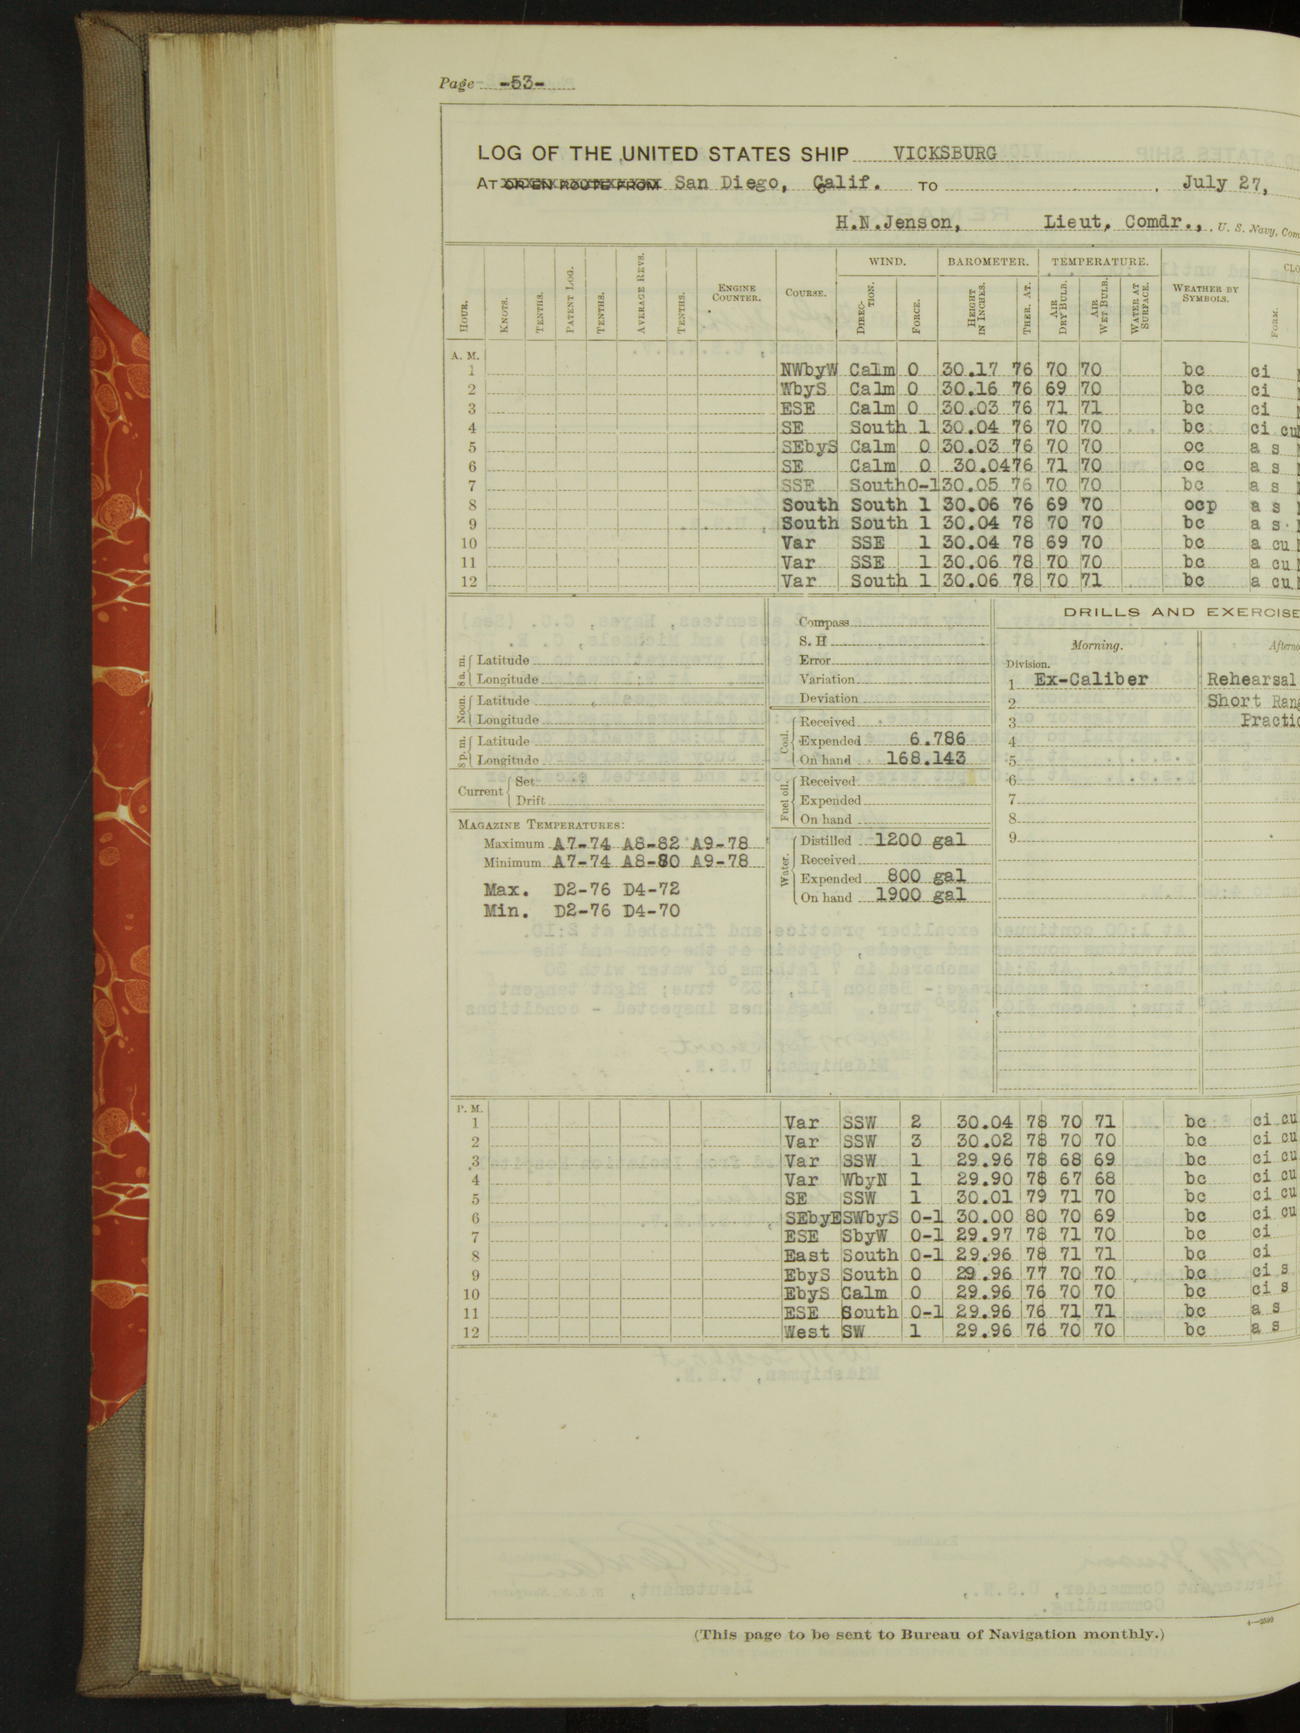 Page -53-
LOG OF THE UNITED STATES SHIP VICKSBURG
AT OR EN ROUTE FROM San Diego, Calif. TO , July 27,
H.N.Jenson, Lieut, Comdr., U. S. Navy, Com
WIND. BAROMETER. TEMPERATURE. CLO
HOUR. KNOTS. TENTHS. PATENT LOG. TENTHS. AVERAGE REVS. TENTHS. ENGINE COUNTER. COURSE. DIRECTION. FORCE. HEIGHT IN INCHES. THER. AT. AIR DRY BULB. AIR WET BULB. WATER AT SURFACE. WEATHER BY SYMBOLS. FORM.
A. M.
1 NWbyW Calm 0 30.17 76 70 70 bc ci
2 WbyS Calm 0 30.16 76 69 70 bc ci
3 ESE Calm 0 30.03 76 71 71 bc ci
4 SE South 1 30.04 76 70 70 bc ci cu
5 SEbyS Calm 0 30.03 76 70 70 oc a s
6 SE Calm 0 30.0476 71 70 oc a s
7 SSE South0-130.05 76 70 70 bc a s
8 South South 1 30.06 76 69 70 ocp a s
9 South South 1 30.04 78 70 70 bc a s
10 Var SSE 1 30.04 78 69 70 bc a cu
11 Var SSE 1 30.06 78 70 70 bc a cu
12 Var South 1 30.06 78 70 71 bc a cu
8 a. m. Latitude
Longitude
Noon. Latitude
Longitude
8 p. m. Latitude
Longitude
Current Set
Drift
MAGAZINE TEMPERATURES:
Maximum A7-74 A8-82 A9-78
Minimum A7-74 A8-80 A9-78
Max. D2-76 D4-72
Min. D2-76 D4-70
Compass
S. H
Error
Variation
Deviation
Coal. Received
Expended 6.786
On hand 168.143
Fuel oil. Received
Expended
On hand
Water. Distilled 1200 gal
Received
Expended 800 gal
On hand 1900 gal
DRILLS AND EXERCISE
Morning. Afterno
Division.
1 Ex-Caliber Rehearsal
2 Short Rang
3 Practic
4
5
6
7
8
9
P. M.
1 Var SSW 2 30.04 78 70 71 bc ci cu
2 Var SSW 3 30.02 78 70 70 bc ci cu
3 Var SSW 1 29.96 78 68 69 bc ci cu
4 Var WbyN 1 29.90 78 67 68 bc ci cu
5 SE SSW 1 30.01 79 71 70 bc ci cu
6 SEbyESWbyS 0-1 30.00 80 70 69 bc ci cu
7 ESE SbyW 0-1 29.97 78 71 70 bc ci
8 East South 0-1 29.96 78 71 71 bc ci
9 EbyS South 0 29.96 77 70 70 bc ci s
10 EbyS Calm 0 29.96 76 70 70 bc ci s
11 ESE South 0-1 29.96 76 71 71 bc a s
12 West SW 1 29.96 76 70 70 bc a s
(This page to be sent to Bureau of Navigation monthly.)